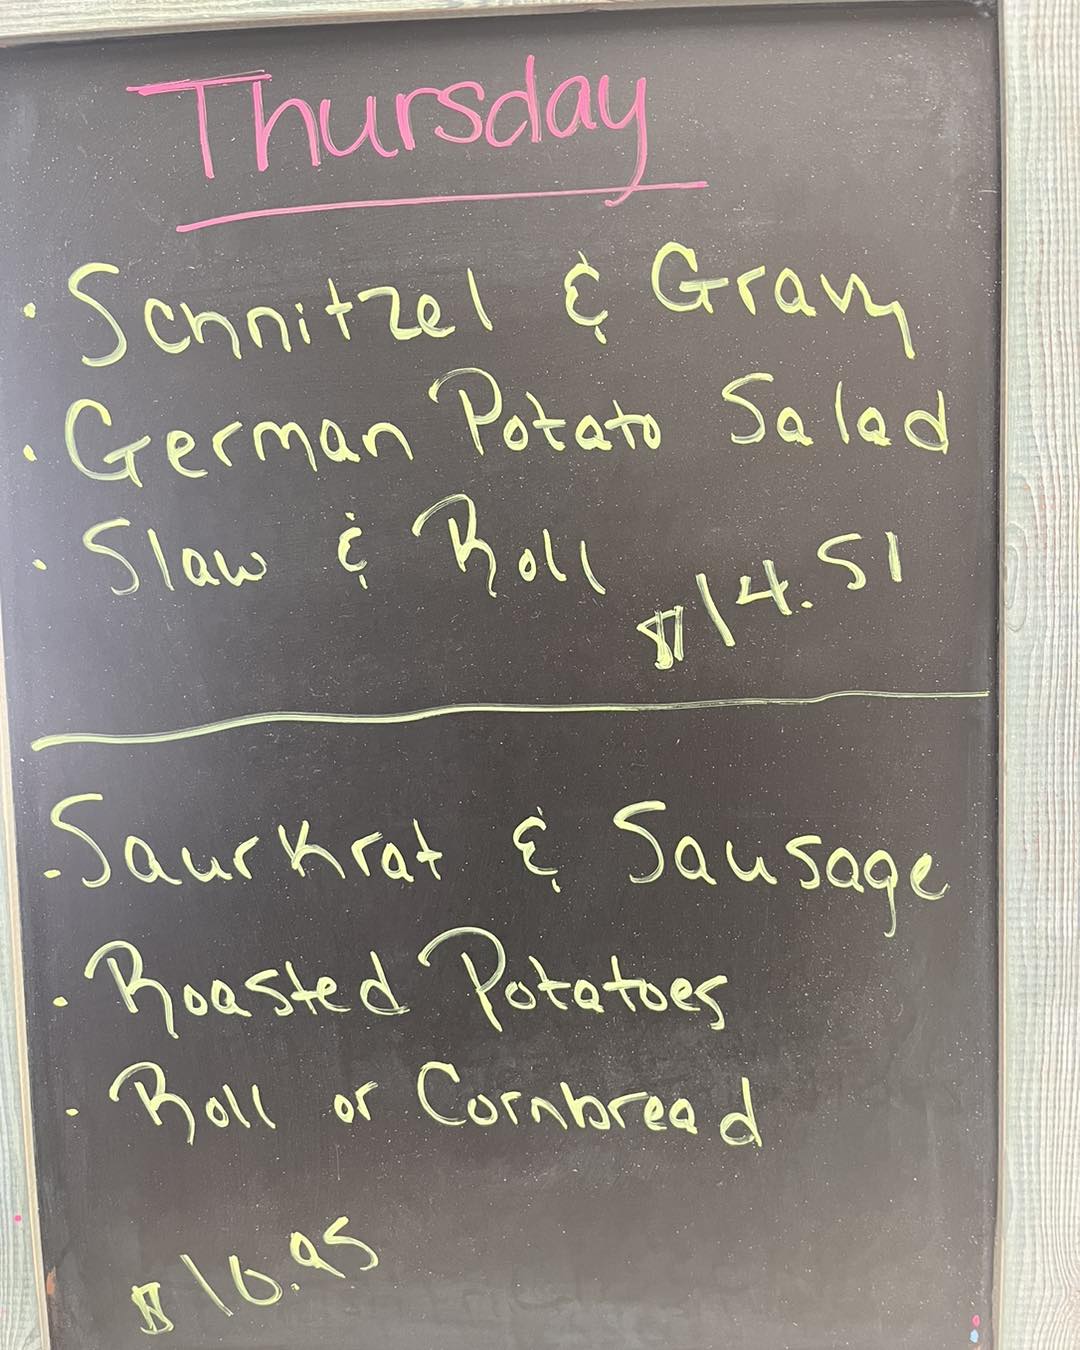 Thursday
· Schnitzel & Gravy
· German Potato Salad
· Slaw & Roll $14.51
· Saurkrat & Sausage
· Roasted Potatoes
· Roll or Cornbread
$10.95